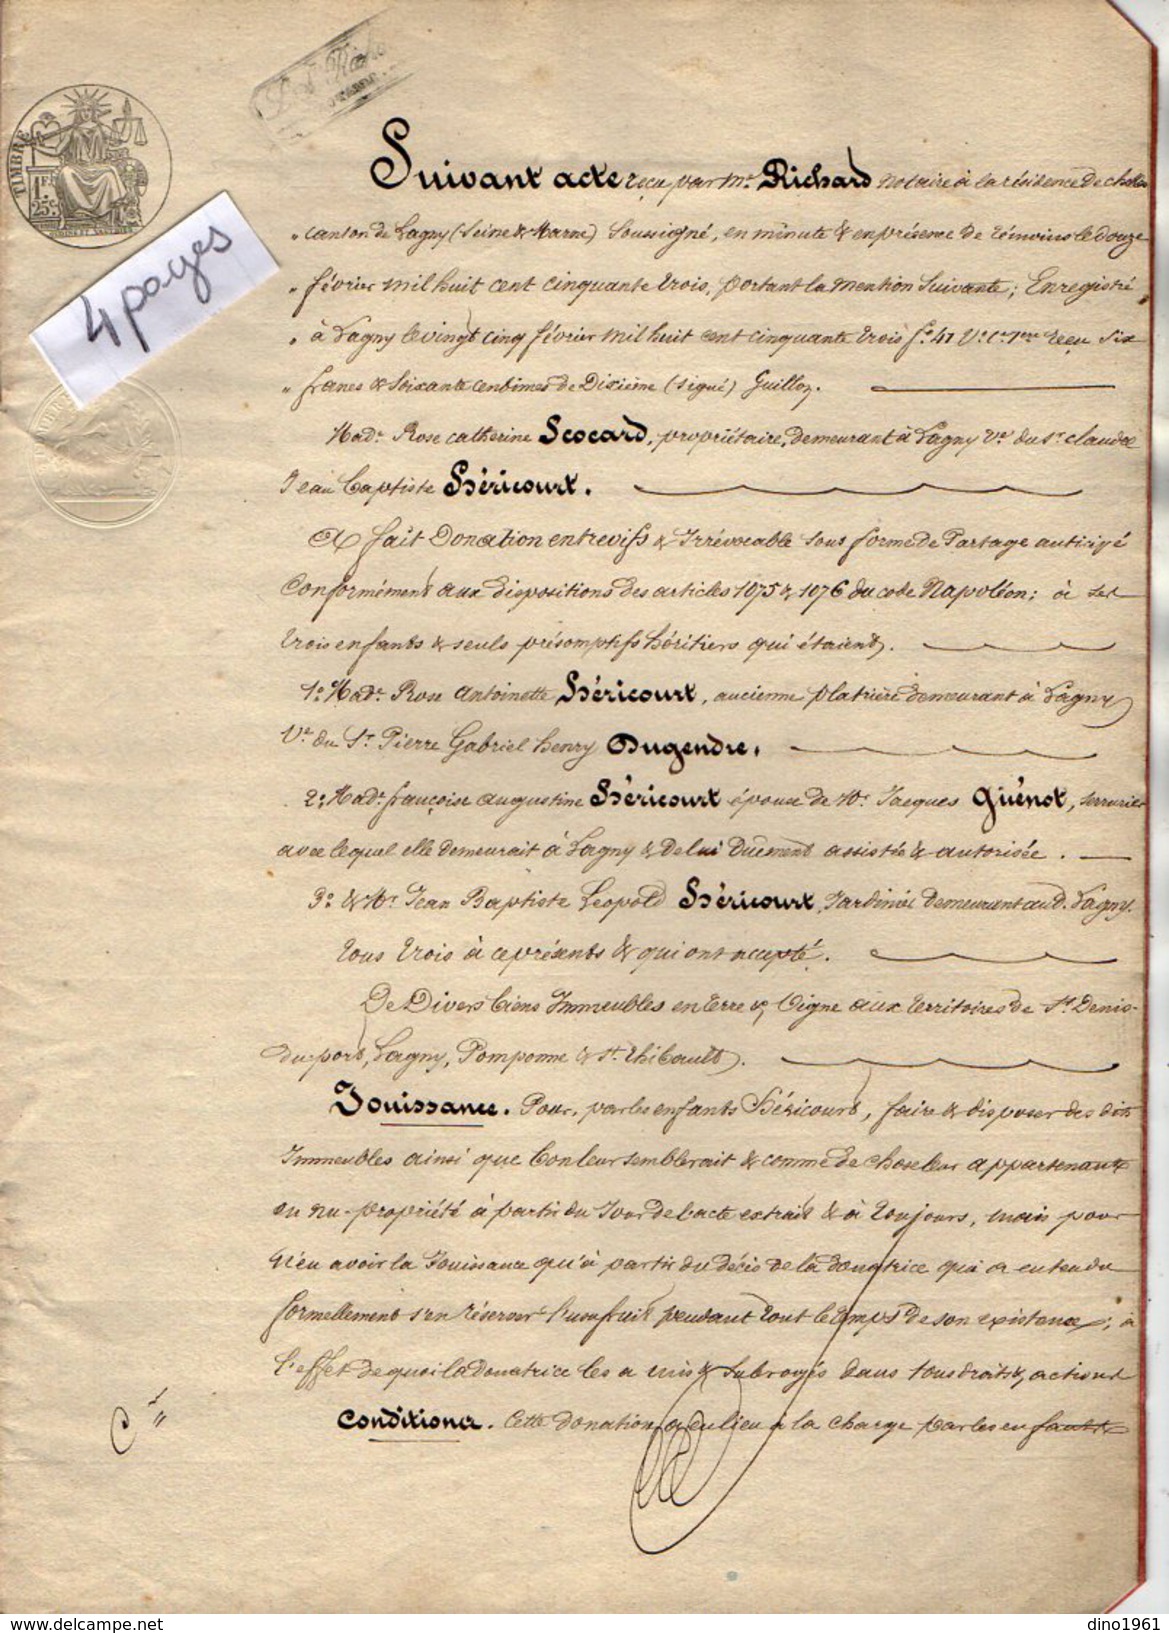 TIMBRE
1F.
25c.
4 pages
Suivant acte reçu par Me Richard notaire à la résidence de Chelles
" canton de Lagny (Seine & Marne) Soussigné, en minute & en présence de témoins le douze
" février mil huit cent cinquante trois, portant la mention Suivante ; Enregistré
" à Lagny le vingt cinq février mil huit cent cinquante trois fo. 41 Vo. Reçu Six
" francs & Soixante centimes de Dixième (signé) Guilloz.
Made. Rose Catherine Scocard, propriétaire, demeurant à Lagny Ve. du Sr. Claude
Jean Baptiste Héricourt.
A fait Donation entrevifs & Irrévocable Sous forme de Partage anticipé
Conformément aux dispositions des articles 1075 & 1076 du code Napoléon ; à ses
trois enfants & seuls présomptifs héritiers qui étaient.
1o. Made. Rose Antoinette Héricourt, ancienne platrière demeurant à Lagny
Ve. du Sr. Pierre Gabriel henry Dugendre.
2o. Made. françoise augustine Héricourt épouse de Mr. Jacques Guénot, serrurier
avec lequel elle demeurait à Lagny & de lui Duement assistée & autorisée.
3o. & Mr. Jean Baptiste Léopold Héricourt, Jardinier demeurant aud. Lagny.
tous trois à ce présents & qui ont accepté.
De Divers biens Immeubles en terre & Vigne aux territoires de St. Denis-
du-port, Lagny, Pomponne & St. Thibault.
Jouissance. Pour, par les enfants Héricourt, faire & disposer des dits
Immeubles ainsi que bon leur semblerait & comme de chose leur appartenant
en nu-propriété à partir du Jour de l'acte extrait & à toujours, mais pour
n'en avoir la Jouissance qu'à partir du décès de la donatrice qui a entendu
formellement s'en réserver l'usufruit pendant tout le temps de son existence ; à
l'effet de quoi la donatrice les a mis & subrogés dans tous droits & actions
Conditions. Cette donation a eu lieu à la charge par les enfants
delcampe.net
dino1961